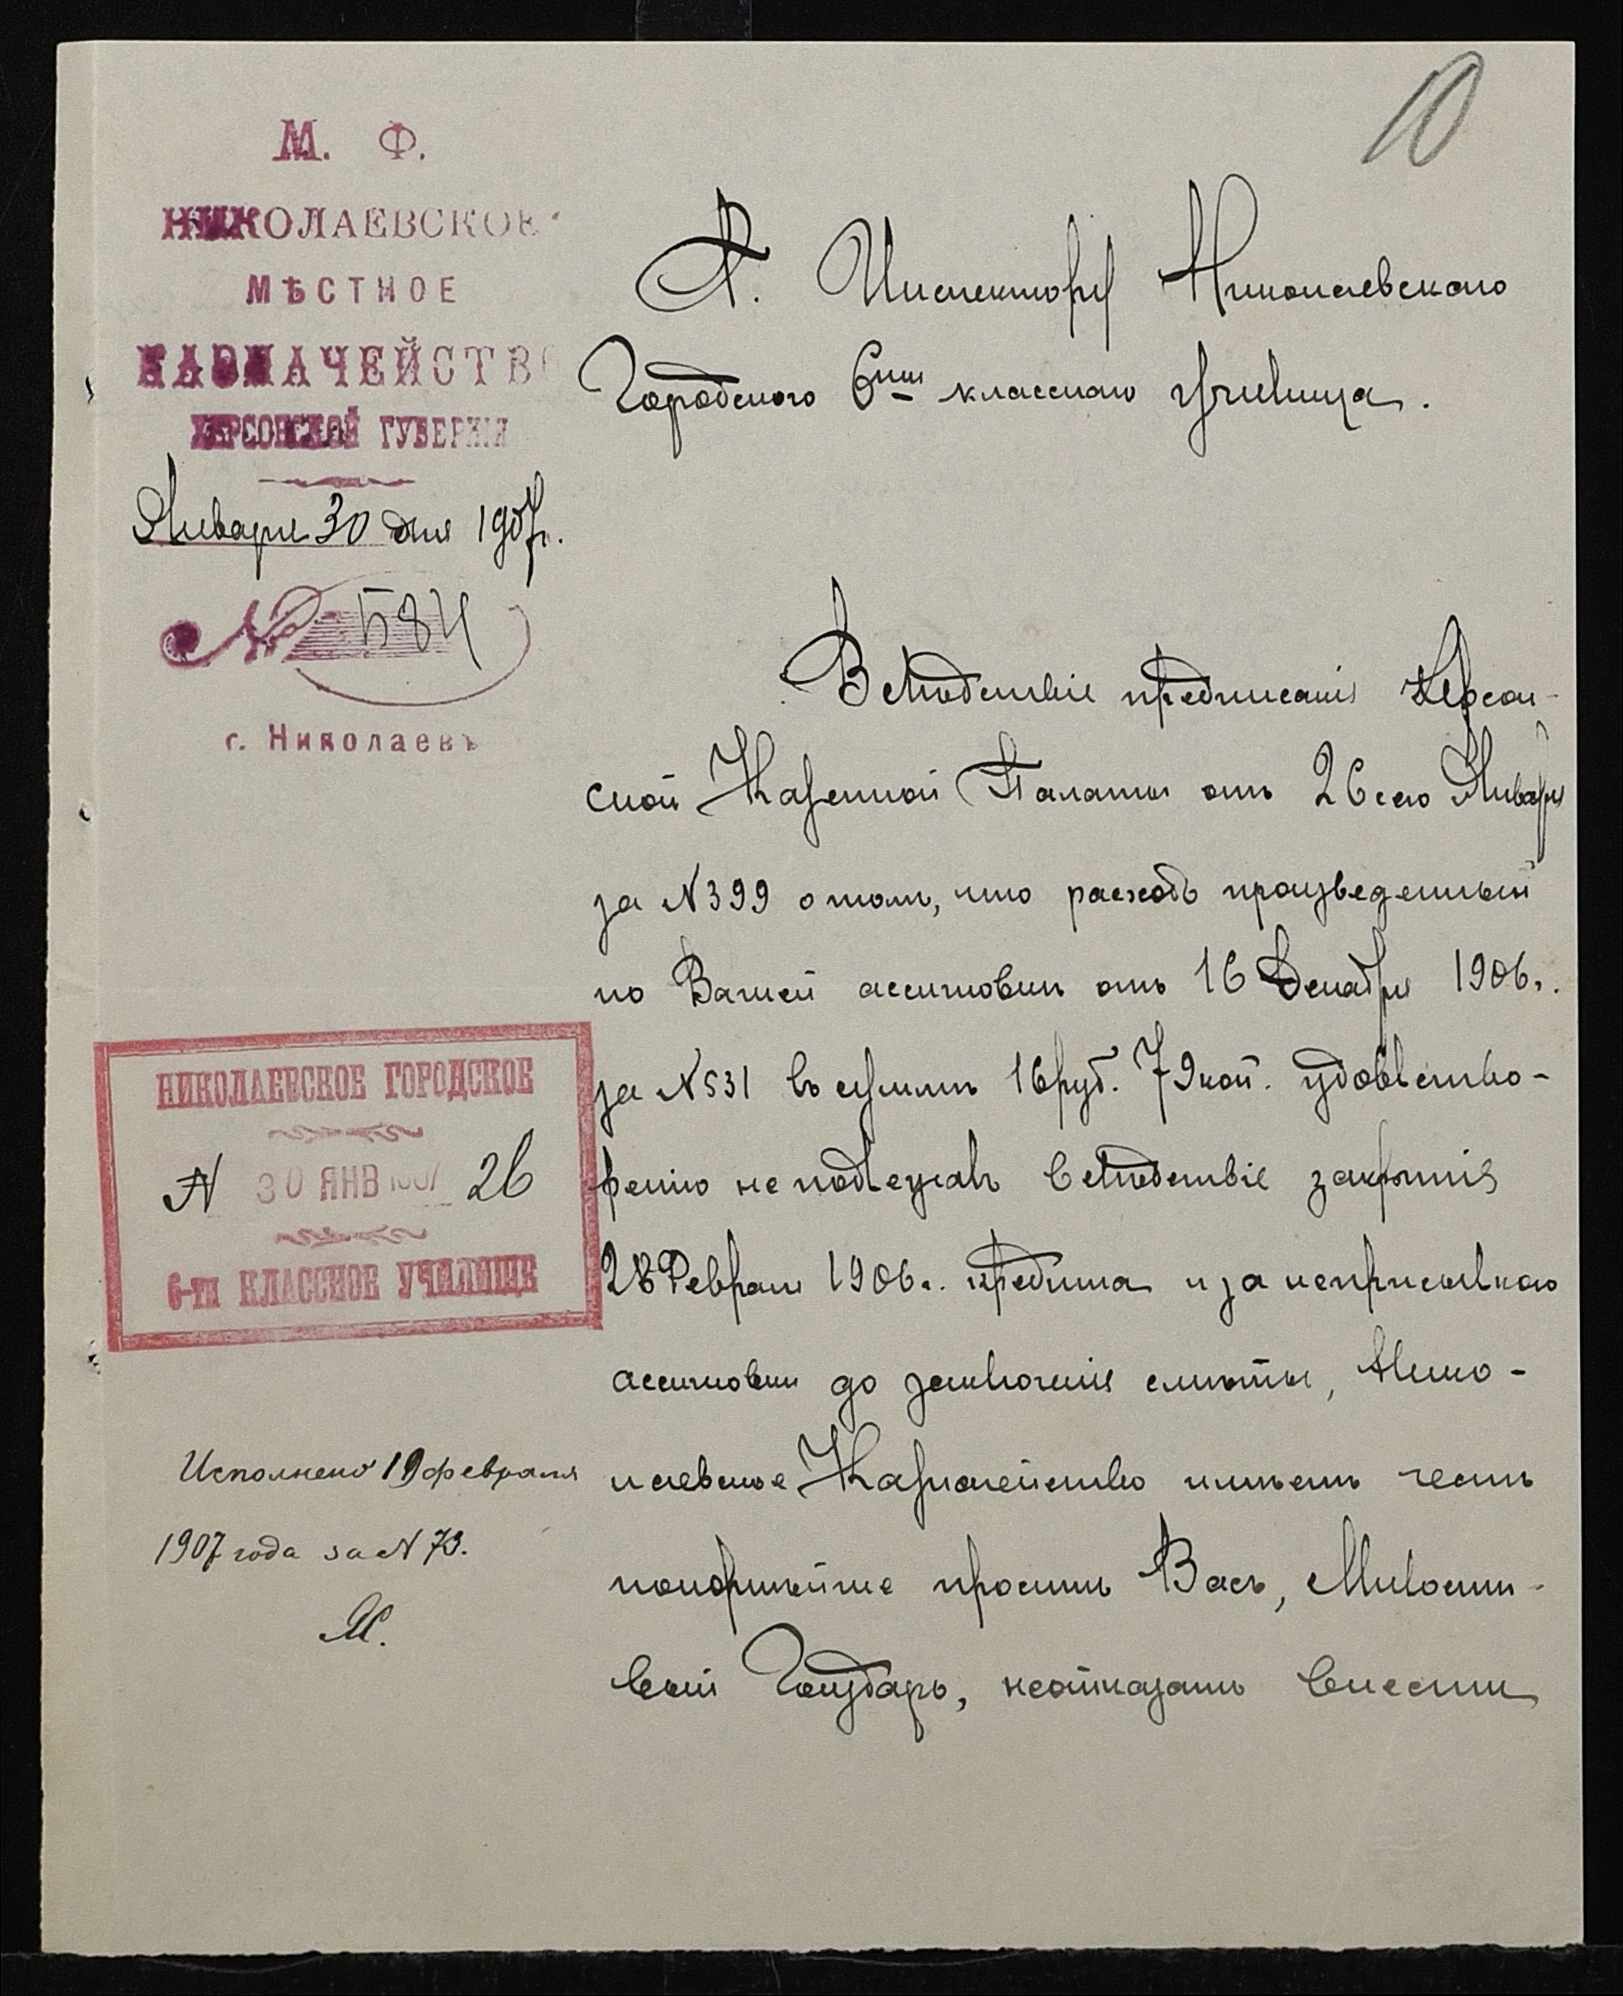 10
М. Ф.
НИКОЛАЕВСКОЕ
МѢСТНОЕ
КАЗНАЧЕЙСТВО
ХЕРСОНСКОЙ ГУБЕРНІИ
Января 30 дня 1907 г.
№ 584
г. Николаевъ
Г. Инспектору Николаевскаго
Городского 6ти класснаго училища.
Вслѣдствіе предписанія Херсон-
ской Казенной Палаты отъ 26 сего Января
за №399 о томъ, что расходъ произведенный
по Вашей ассигновкѣ отъ 16 Декабря 1906 г.
за №531 въ суммѣ 16 руб. 79 коп. удовлетво-
ренію не подлежалъ вслѣдствіе закрытія
28 Февраля 1906 г. кредита и за неприсылкою
ассигновки до заключенія смѣты, Нико-
лаевское Казначейство имѣетъ честь
покорнѣйше просить Васъ, Милости-
вый Государь, неотказать внести
НИКОЛАЕВСКОЕ ГОРОДСКОЕ
N 30 ЯНВ 1907 26
6-ти КЛАССНОЕ УЧИЛИЩЕ
Исполнено 19 февраля
1907 года за N 73.